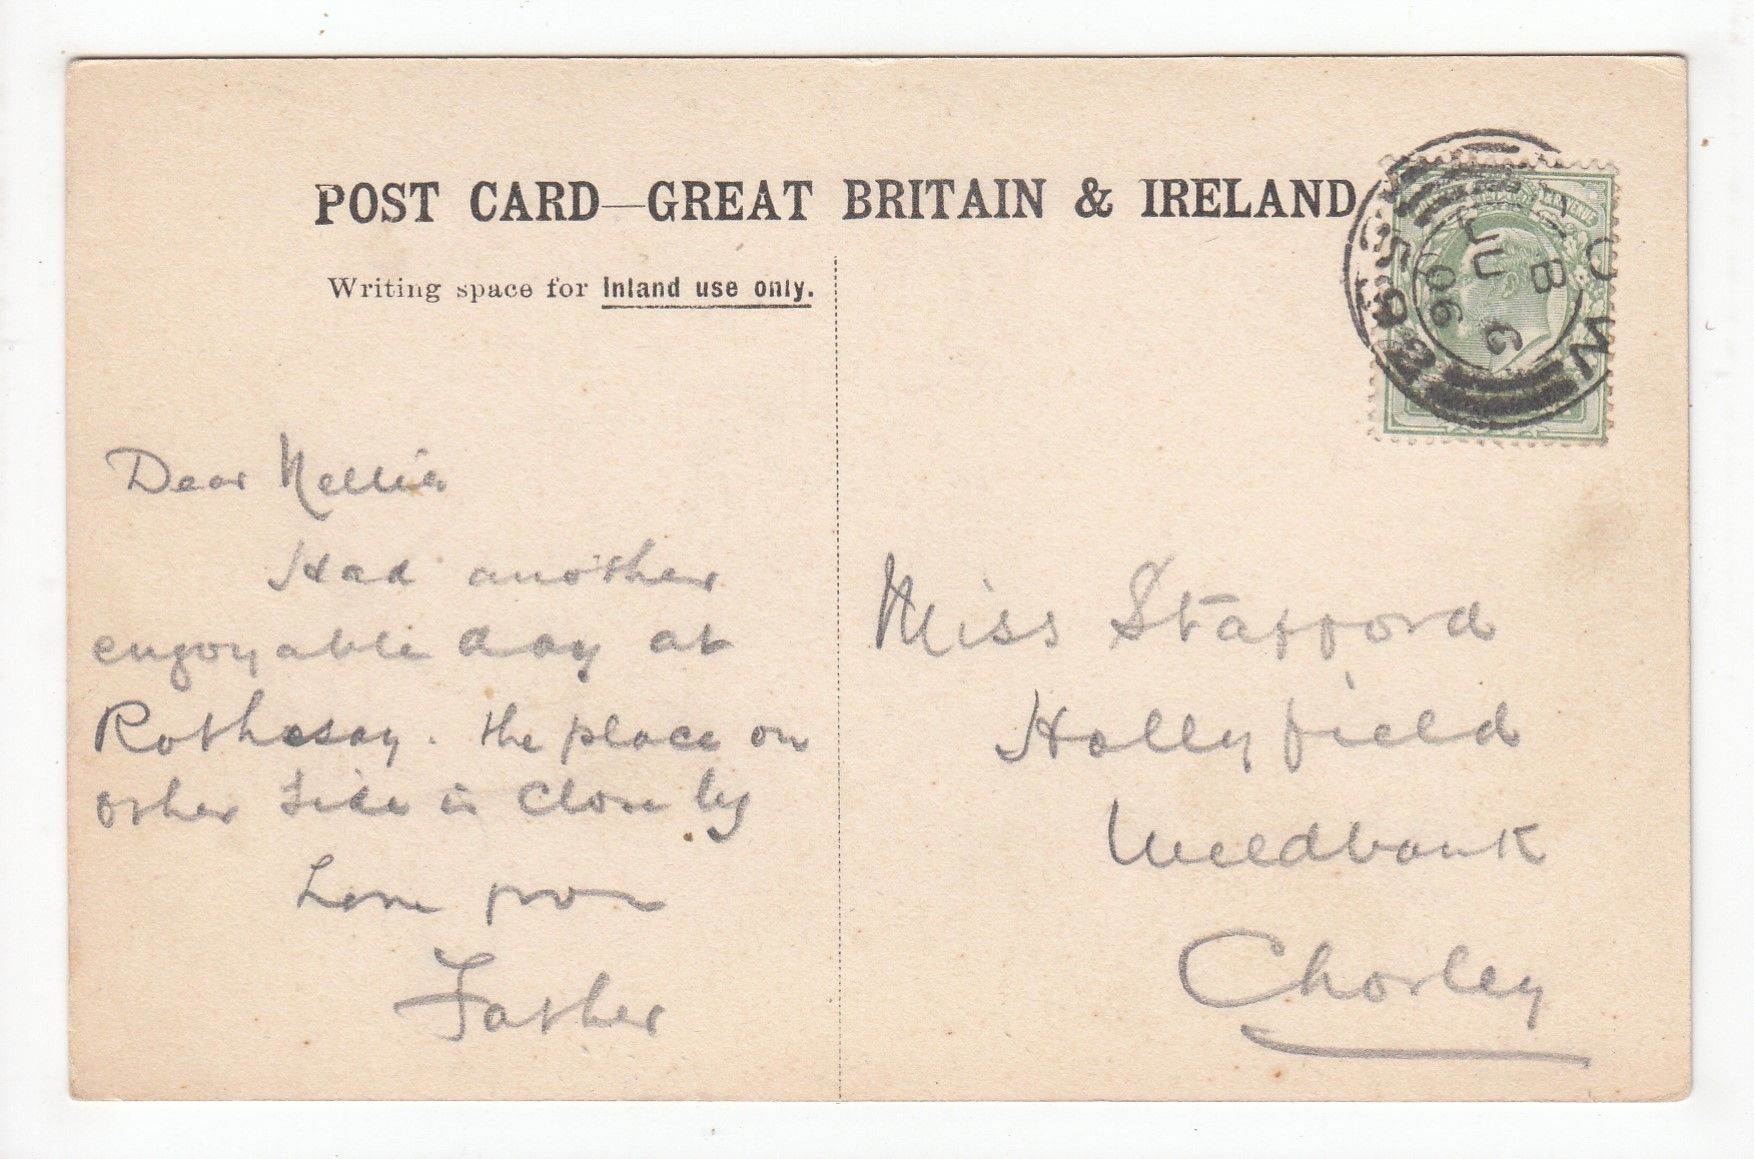 POST CARD—GREAT BRITAIN & IRELAND
Writing space for Inland use only.
B
JU 6
06
Dear Nellie
Had another
enjoyable day at
Rothesay. the place on
other side is close by
Love from
Father
Miss Stafford
Hollyfield
Weldbank
Chorley